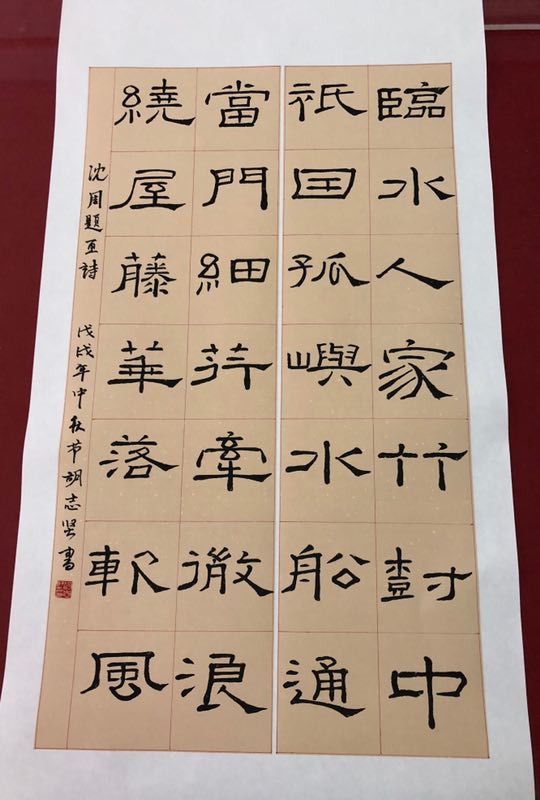 臨水人家竹樹中
祇因孤嶼水船通
當門細荇牽微浪
繞屋藤華落軟風
沈周題画詩 戊戌年中秋节胡志坚書